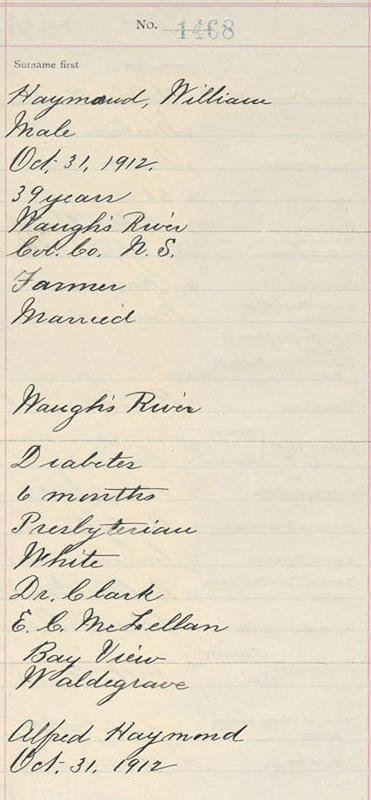 No. 1468
Surname first
Haymond, William
Male
Oct. 31, 1912.
39 years
Waugh's River
Col. Co. N. S.
Farmer
Married
Waugh's River
Diabetes
6 months
Presbyterian
White
Dr. Clark
E. C. McLellan
Bay View
Waldegrave
Alfred Haymond
Oct. 31, 1912